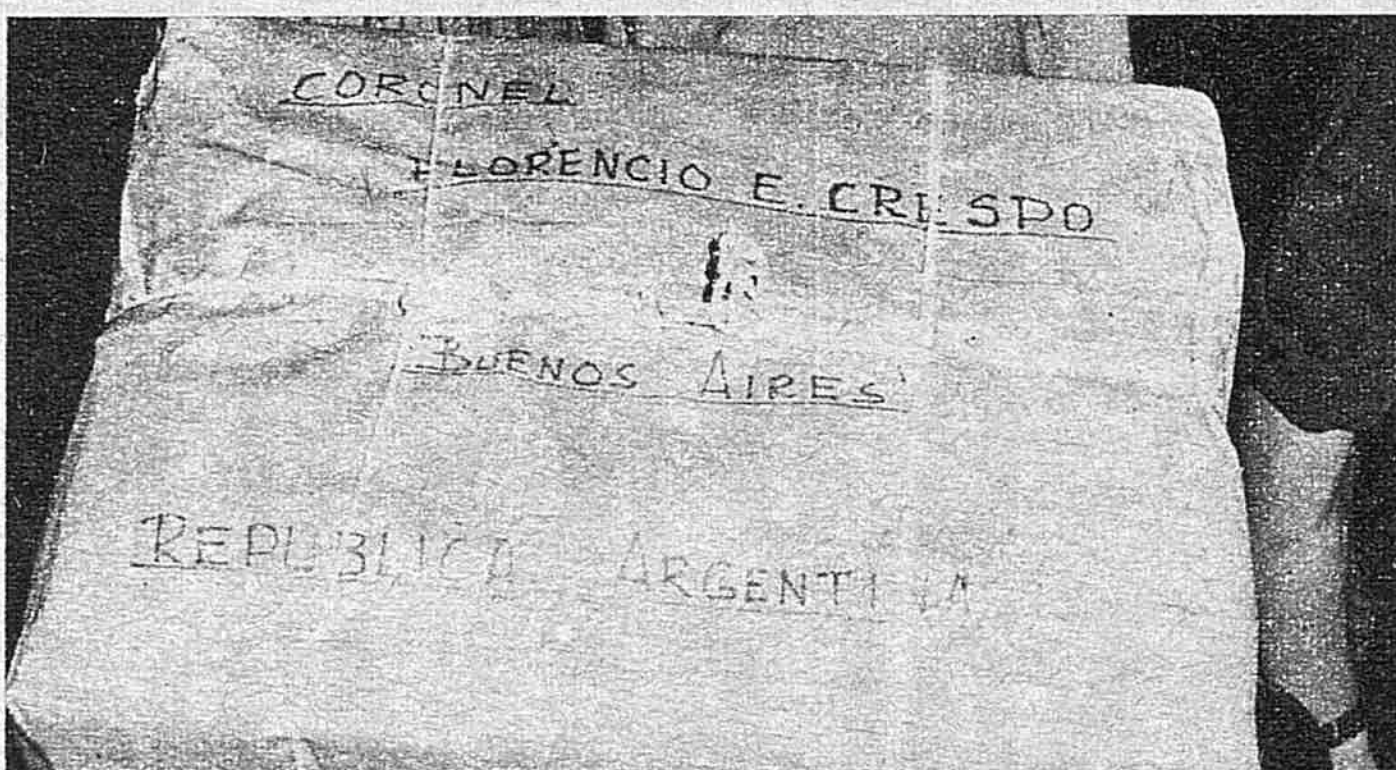 CORONEL
FLORENCIO E. CRESPO
BUENOS AIRES
REPUBLICA ARGENTINA